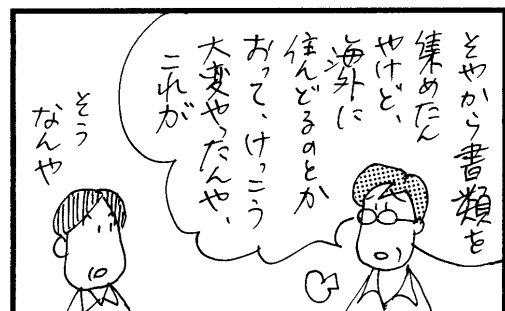 そやから書類を
集めたん
やけど、
海外に
住んどるのとか
おって、けっこう
大変やったんや、
これが
そう
なんや